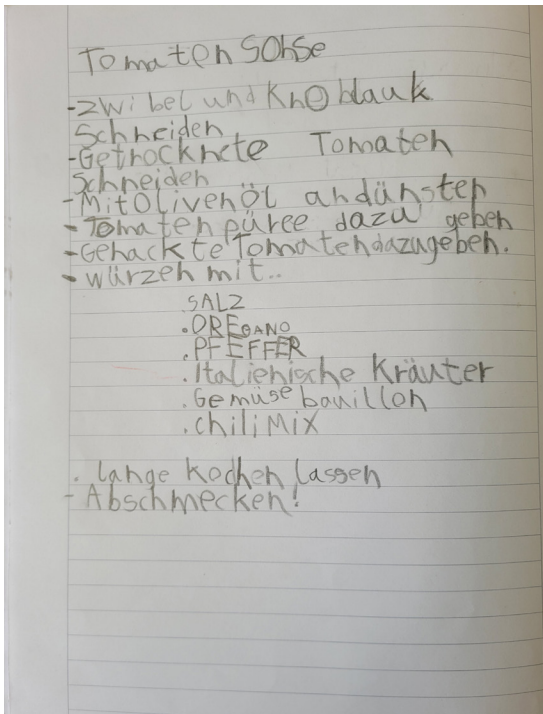 Tomaten SOhSe
-Zwibel und Knoblauk
Schneiden
-Getrocknete Tomaten
Schneiden
-Mit Olivenöl andünsten
-Tomatenpüree dazu geben
-Gehackte Tomaten dazugeben.
-würzen mit..
.SALZ
.OREGANO
.PFEFFER
.Italienische Kräuter
.Gemüsebouillon
.chili Mix
. lange kochen lassen
- Abschmecken!